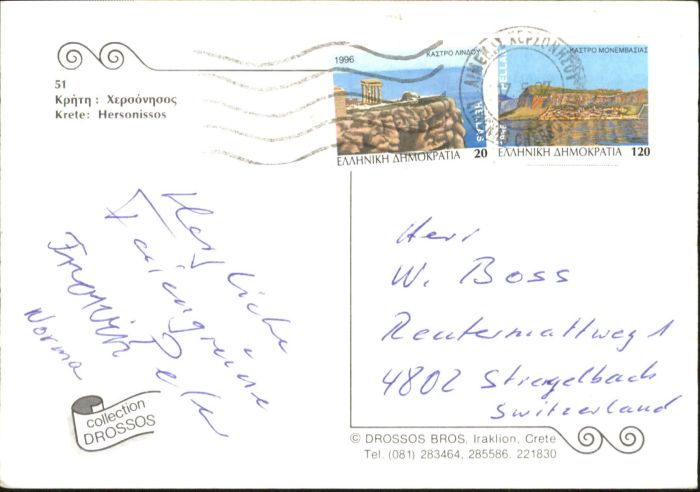 51
Κρήτη : Χερσόνησος
Krete: Hersonissos
1996
ΚΑΣΤΡΟ ΛΙΝΔΟΥ
HELLAS
ΕΛΛΗΝΙΚΗ ΔΗΜΟΚΡΑΤΙΑ 20
ΚΑΣΤΡΟ ΜΟΝΕΜΒΑΣΙΑΣ
HELLAS
ΕΛΛΗΝΙΚΗ ΔΗΜΟΚΡΑΤΙΑ 120
ΛΙΜΕΝΑΣ ΧΕΡΣΟΝΗΣΟΥ
Herzliche
Feriengrüsse
Norma
Herr
W. Boss
Reutermattweg 1
4802 Strengelbach
Switzerland
collection
DROSSOS
© DROSSOS BROS, Iraklion, Crete
Tel. (081) 283464, 285586. 221830